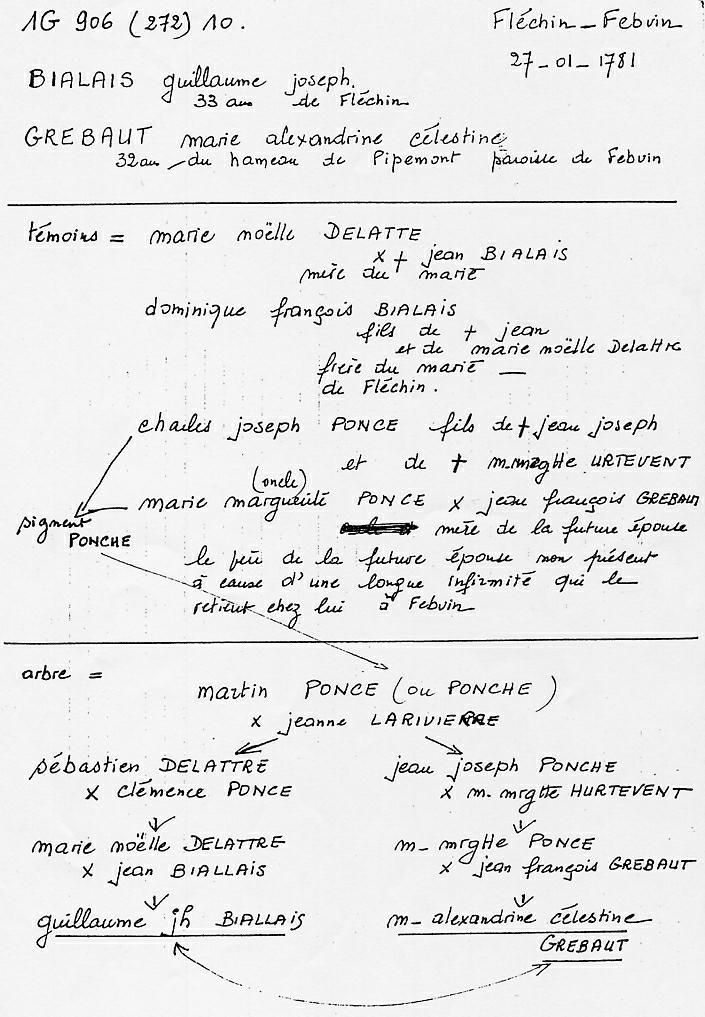 1G 906 (272) 10.
Fléchin - Febvin
27-01-1781
BIALAIS guillaume joseph.
33 ans de Fléchin
GREBAUT marie alexandrine célestine
32 ans du hameau de Pipemont paroisse de Febvin
témoins = marie noëlle DELATTE
x + jean BIALAIS
mère du marié
dominique françois BIALAIS
fils de + jean
et de marie noëlle Delattre
frère du marié —
de Fléchin.
charles joseph PONCE fils de + jean joseph
et de + m. mrgtte URTEVENT
(oncle)
marie marguerite PONCE x jean françois GREBAUT
mère de la future épouse
signent
PONCHE
le père de la future épouse non présent
à cause d'une longue infirmité qui le
retient chez lui à Febvin
arbre =
martin PONCE (ou PONCHE)
x jeanne LARIVIERRE
sébastien DELATTRE
x Clémence PONCE
jean joseph PONCHE
x m. mrgtte HURTEVENT
marie noëlle DELATTRE
x jean BIALLAIS
m- mrgtte PONCE
x jean françois GREBAUT
guillaume jh BIALLAIS
m- alexandrine célestine
GREBAUT